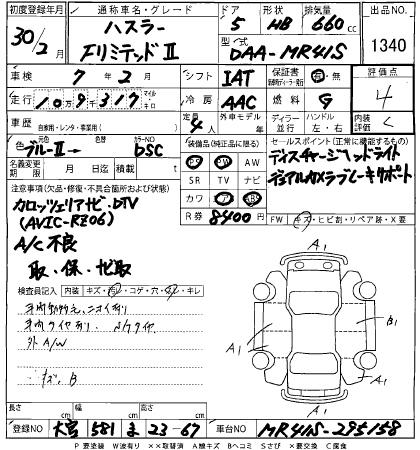 初度登録年月 通称車名・グレード ドア 形状 排気量 出品NO.
30/2月 ハスラー 5 HB 660cc 1340
Fリミテッド II 型式 DAA-MR41S
車検 7年2月 シフト IAT 保証書 有・無 評価点
走行 10万9千317 マイル キロ 冷房 AAC 燃料 G 4
車歴 自家用・レンタ・事業用( ) 定員 4人 外車モデル 年 ディーラー 並行 ハンドル 左・右 内装 C
色 ブルーII→ 色替 カラーNO DSC 装備品(純正品に限る) セールスポイント(正常に機能するもの)
名義変更期限 月 日 積載 t PS PW AW ディスチャージヘッドライト
SR TV ナビ デュアルカメラブレーキサポート
注意事項(欠品・修復・不具合箇所および状態) カワ エアB ABS
カロッツェリアナビ・DTV R券 8400円 FW キズ・ヒビ割・リペア跡・X要
(AVIC-RZ06)
A/C不良
取・保・ナビ取
検査員記入 内装 キズ・汚・コゲ・穴・ヌレ・キレ
外A/W
キズ、B
A1
A1
B1
A1
A1
A1
長さ cm 幅 cm 高さ cm
登録NO 大宮 581 ま 23-67 車台NO MR41S-295158
P 要塗装 W波有り ××取替済 A線キズ Bヘコミ Sさび ×要交換 C腐食